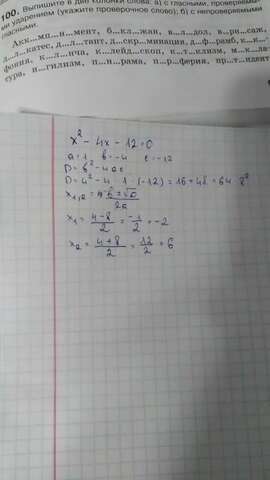 100. Выпишите в две колонки слова: а) с гласными, проверяемы-
ми ударением (укажите проверочное слово); б) с непроверяемыми
гласными.
Акк...мп...н...мент, б...кл...жан, в...л...дол, в...рн...саж,
д...л...катес, д...л...тант, д...скр...минация, д...ф...рамб, к...к...
фония, к...л...нча, к...лейд...скоп, к...т...клизм, м...к...ла-
тура, н...гилизм, п...н...рама, п...р...ферия, пр...т...ндент
x² - 4x - 12 = 0
a = 1 b = -4 c = -12
D = b² - 4ac
D = 4² - 4 · 1 · (-12) = 16 + 48 = 64 8²
x₁,₂ = -b ± √D / 2a
x₁ = 4-8 / 2 = -4 / 2 = -2
x₂ = 4+8 / 2 = 12 / 2 = 6